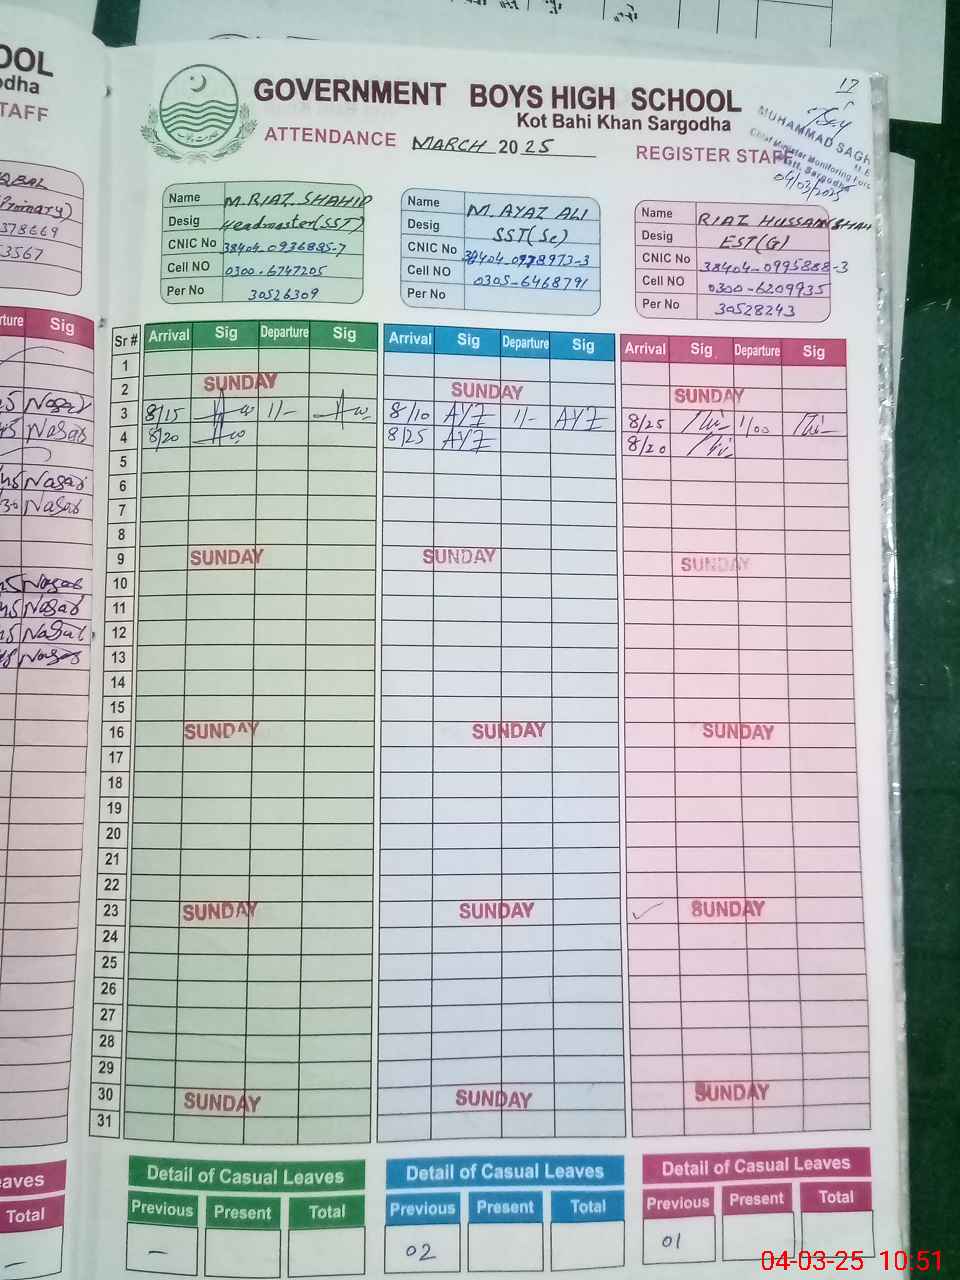 OOL
odha
STAFF
QBAL
(Primary)
378669
3567
GOVERNMENT BOYS HIGH SCHOOL
Kot Bahi Khan Sargodha
ATTENDANCE MARCH 2025
REGISTER STAFF
17
MUHAMMAD SAGH
Chief Minister Monitoring Forc
Distt. Sargodha
04/03/2025
Name M.RIAZ SHAHID
Desig Headmaster(SST)
CNIC No 38404-0936885-7
Cell NO 0300-6747205
Per No 30526309
Name M. AYAZ ALI
Desig SST(Sc)
CNIC No 38404-0978973-3
Cell NO 0305-6468791
Per No
Name RIAZ HUSSAIN SHAH
Desig EST(G)
CNIC No 38404-0995888-3
Cell NO 0300-6209935
Per No 30528243
rture Sig
Sr # Arrival Sig Departure Sig Arrival Sig Departure Sig Arrival Sig Departure Sig
1
2 SUNDAY SUNDAY SUNDAY
3 8/15 1/- 8/10 AYZ 1/- AYZ 8/25 1/00
4 8/20 8/25 AYZ 8/20
5
6
7
8
9 SUNDAY SUNDAY SUNDAY
10
11
12
13
14
15
16 SUNDAY SUNDAY SUNDAY
17
18
19
20
21
22
23 SUNDAY SUNDAY SUNDAY
24
25
26
27
28
29
30 SUNDAY SUNDAY SUNDAY
31
eaves
Total
–
Detail of Casual Leaves
Previous Present Total
–
Detail of Casual Leaves
Previous Present Total
02
Detail of Casual Leaves
Previous Present Total
01
04-03-25 10:51